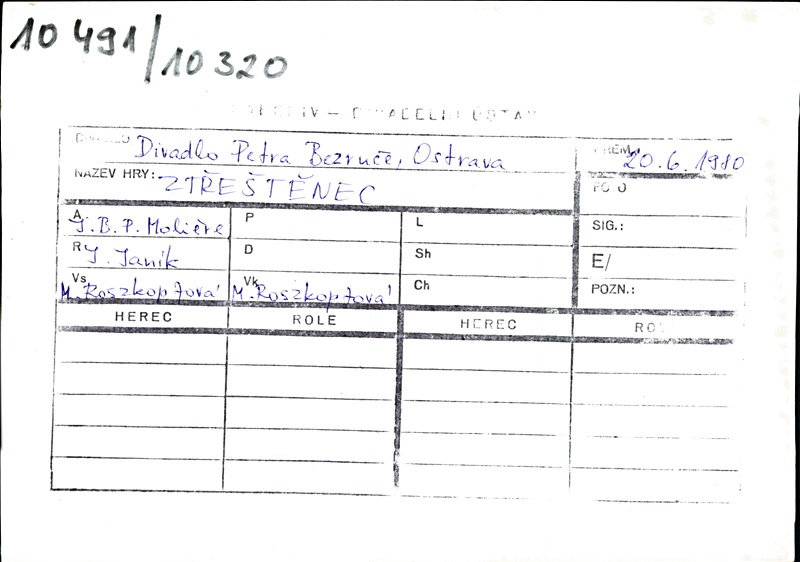 10 491/10 320
DIVADELNÍ ÚSTAV
Divadlo Petra Bezruče, Ostrava
PREM. 20.6.1980
NÁZEV HRY: ZTŘEŠTĚNEC
FOTO
A J. B. P. Molière
P
L
SIG.:
R J. Janík
D
Sh
E/
Vs M. Roszkopfová
Vk M. Roszkopfová
Ch
POZN.:
HEREC ROLE HEREC ROL